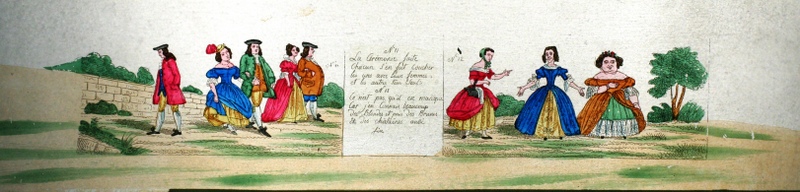 N 11
La Ceremonie faite
Chacun s'en fut Coucher
les uns avec leurs femmes
et les autres tous seuls
N 12
Ce n'est pas qu'il en manque
Car j'en Connois beaucoup
des Blondes et puis des Brunes
et des chataines aussi
fin
N 12